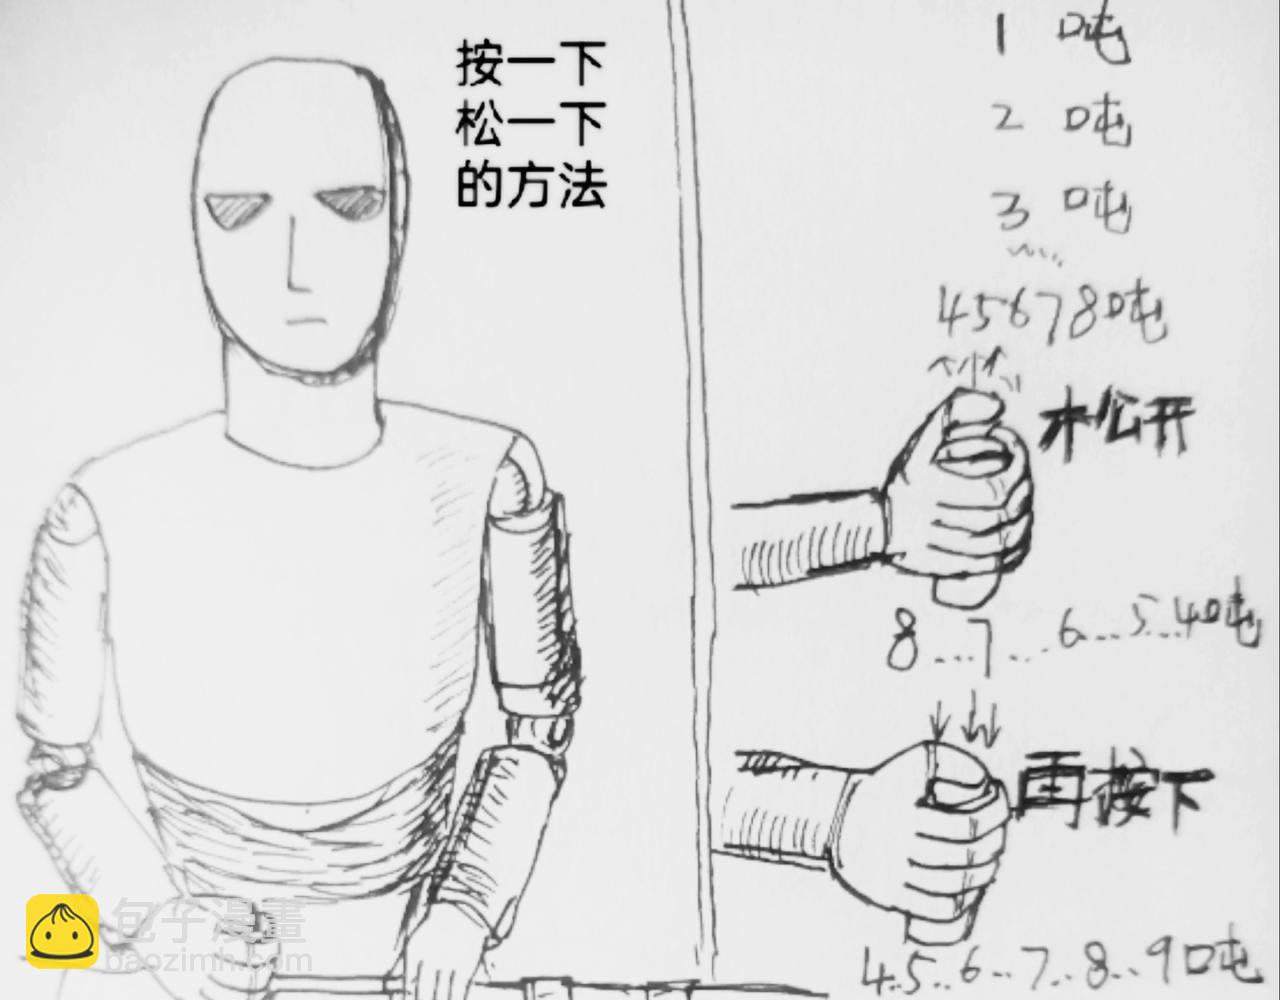 按一下
松一下
的方法
1 吨
2 吨
3 吨
45678吨
松开
8...7...6...5...4吨
再按下
4.5..6..7..8..9吨
包子漫畫
baozimh.com